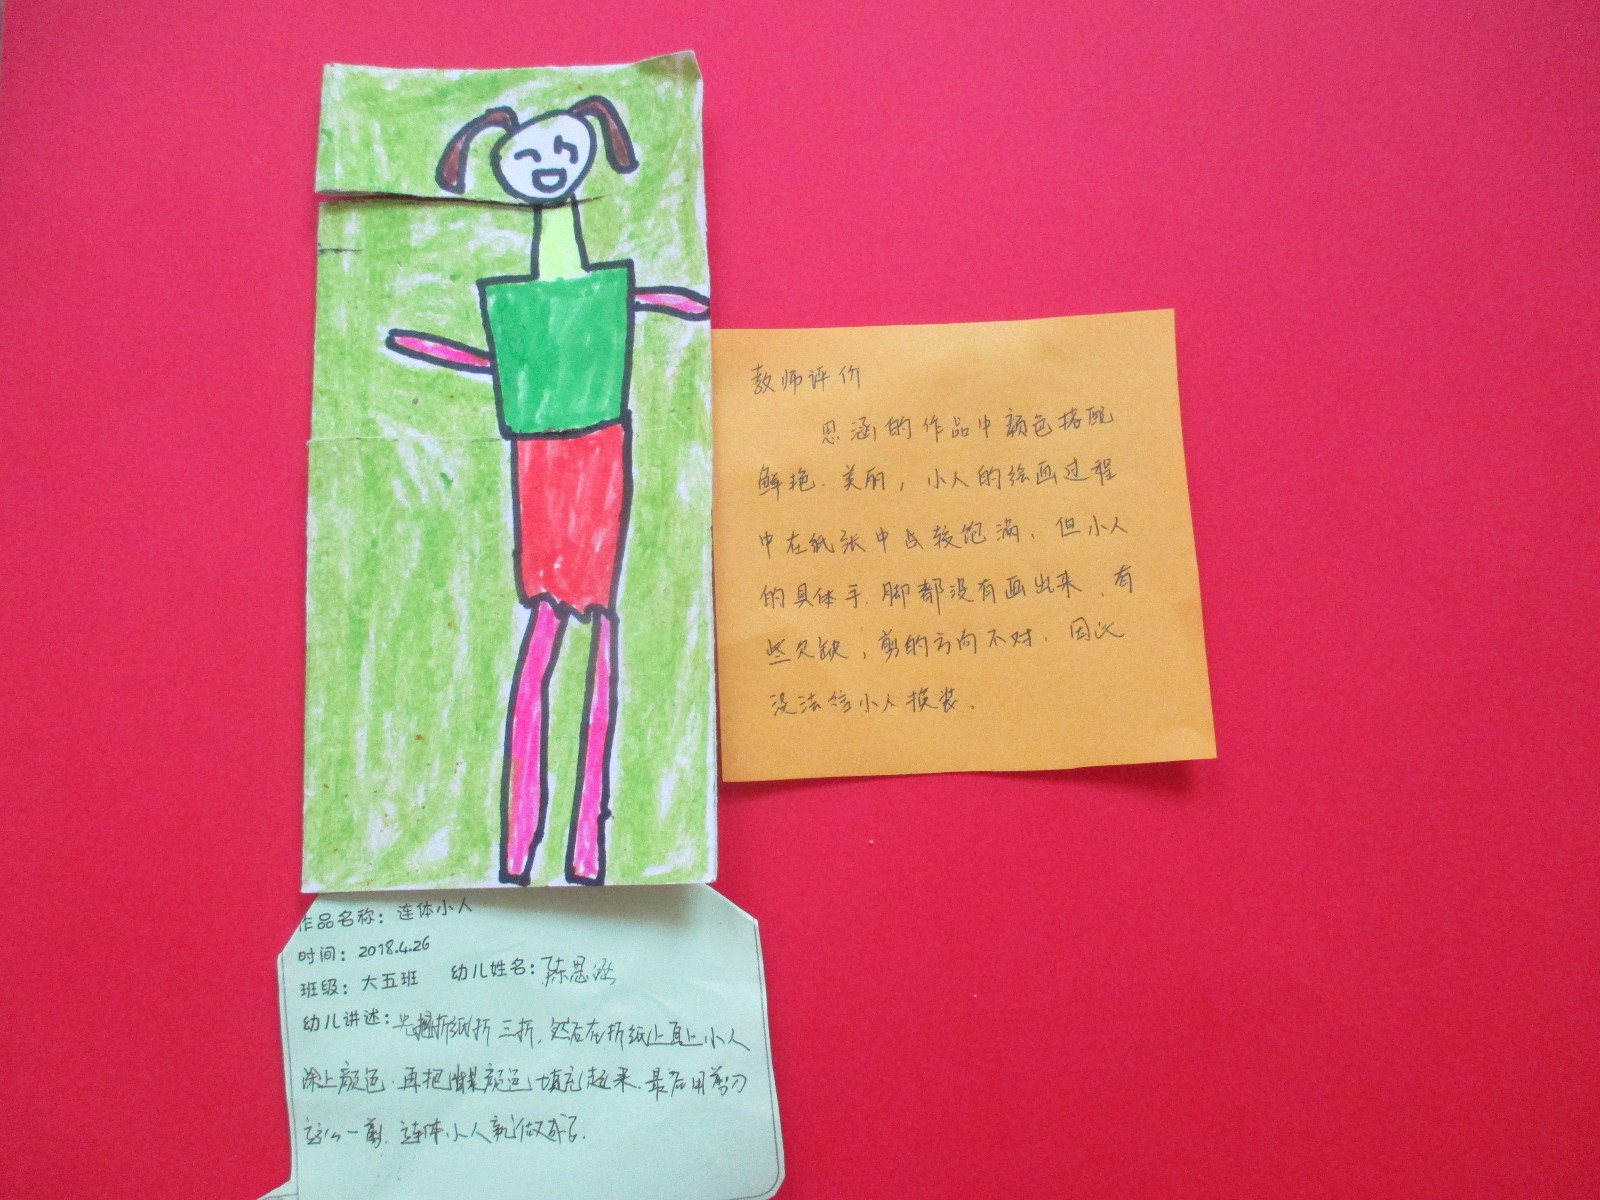 教师评价
思涵的作品中颜色搭配
鲜艳、美丽，小人的绘画过程
中在纸张中占较饱满，但小人
的具体手、脚都没有画出来，有
些欠缺，剪的方向不对，因此
没法给小人换装、
作品名称：连体小人
时间：2018.4.26
班级：大五班 幼儿姓名：陈思涵
幼儿讲述：先折纸折三折，然后在折纸上画上小人
涂上颜色，再把颜色填充起来，最后用剪刀
这么一剪，连体小人就做成了.